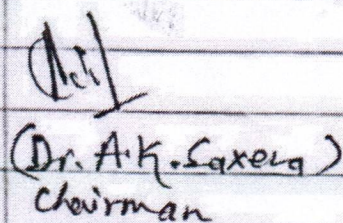 (Dr. A.K. Saxena)
Chairman